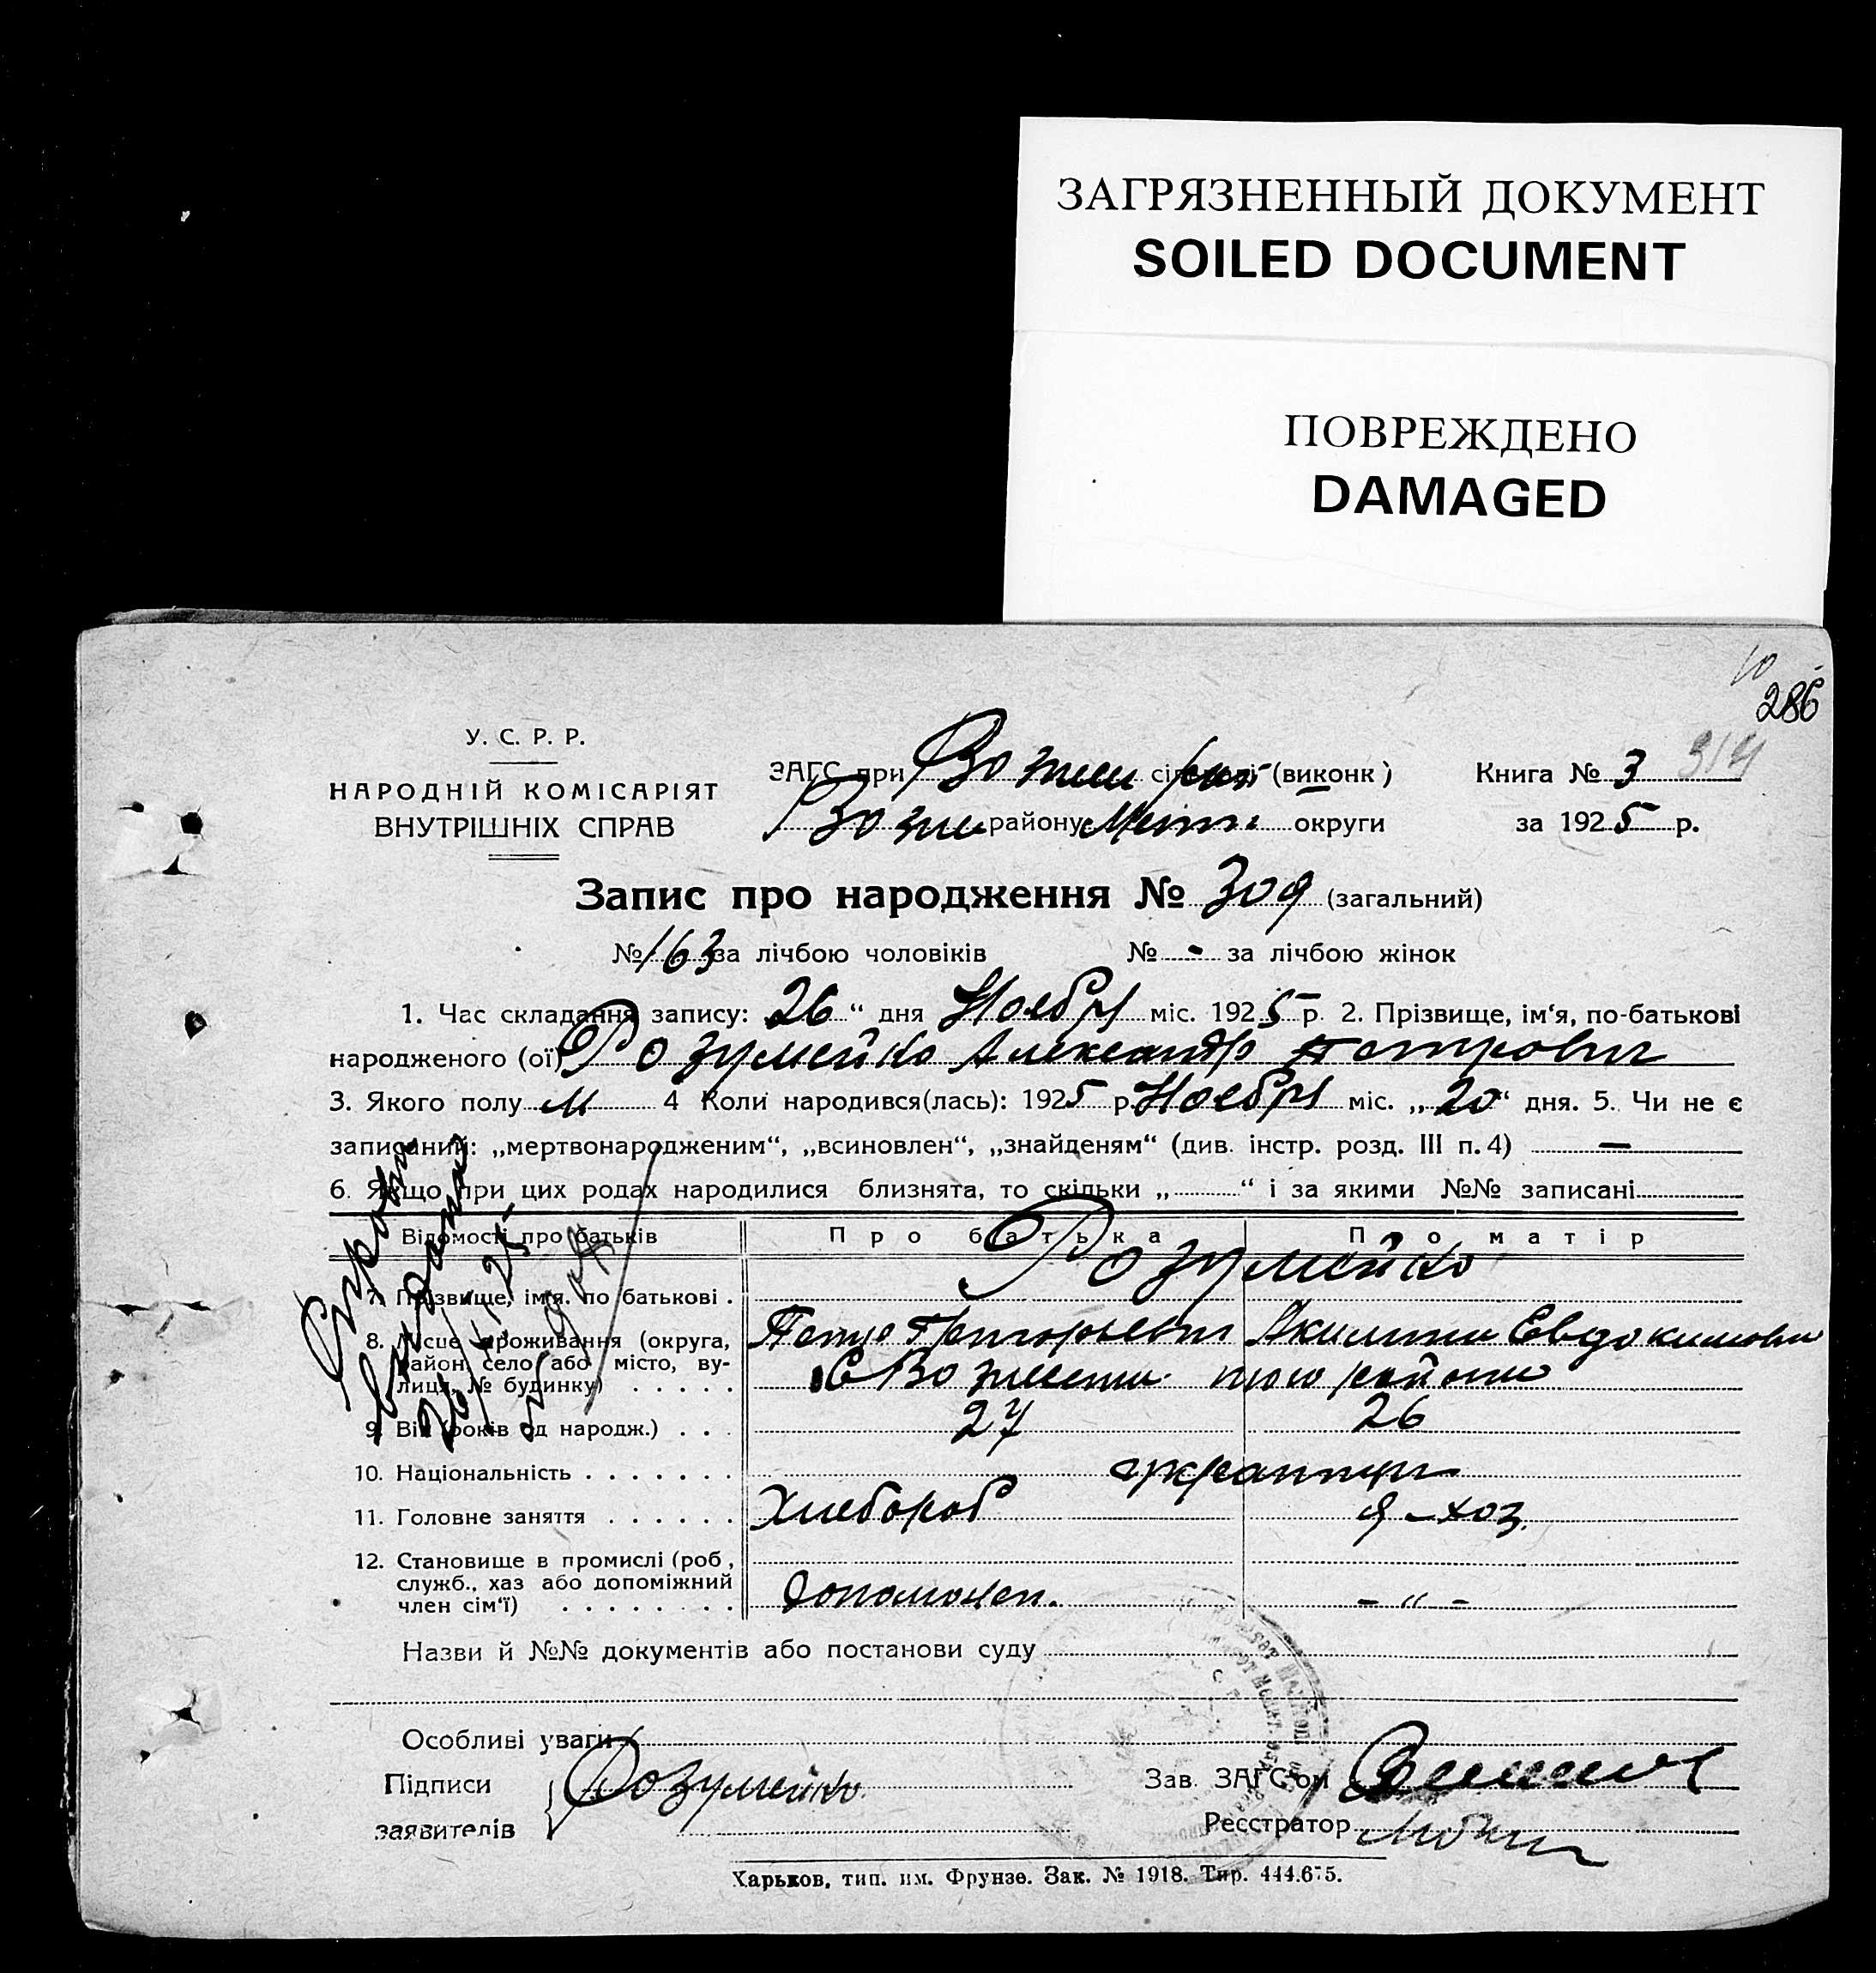 ЗАГРЯЗНЕННЫЙ ДОКУМЕНТ
SOILED DOCUMENT
ПОВРЕЖДЕНО
DAMAGED
10
286
314
У. С. Р. Р.
НАРОДНІЙ КОМІСАРІЯТ
ВНУТРІШНІХ СПРАВ
ЗАГС при (виконк)
району округи
Книга № 3
за 1925 р.
Запис про народження № 309 (загальний)
№ 163 за лічбою чоловіків № - за лічбою жінок
1. Час складання запису: 26 “ дня Ноября міс. 1925 р. 2. Прізвище, ім‘я, по-батькові
народженого (ої) Розумейко Александр Петрович
3. Якого полу м 4 Коли народився(лась): 1925 р. Ноября міс. „ 20 “ дня. 5. Чи не є
записаний: „мертвонародженим“, „всиновлен“, „знайденям“ (див. інстр. розд. III п. 4) —
6. Якщо при цих родах народилися близнята, то скільки „ “ і за якими №№ записані
Відомості про батьків Про батька Про матір
Розумейко
7. Прізвище, ім‘я. по батькові .
8. Місце проживання (округа, Петро Григорьевич Евдокимовна
район, село або місто, ву-
лиця, № будинку) . . . . . района
9. Вік (років од народж.) . . . 27 26
10. Національність . . . . . . . украинцы
11. Головне заняття . . . . . . Хлебороб д-хоз.
12. Становище в промислі (роб,
служб., хаз або допоміжний
член сім‘ї) . . . . . . . . - " -
Назви й №№ документів або постанови суду
Особливі уваги
Підписи Розумейко
заявителів
Зав. ЗАГС‘ом
Реєстратор
Харьков, тип. им. Фрунзе. Зак. № 1918. Тир. 444.675.